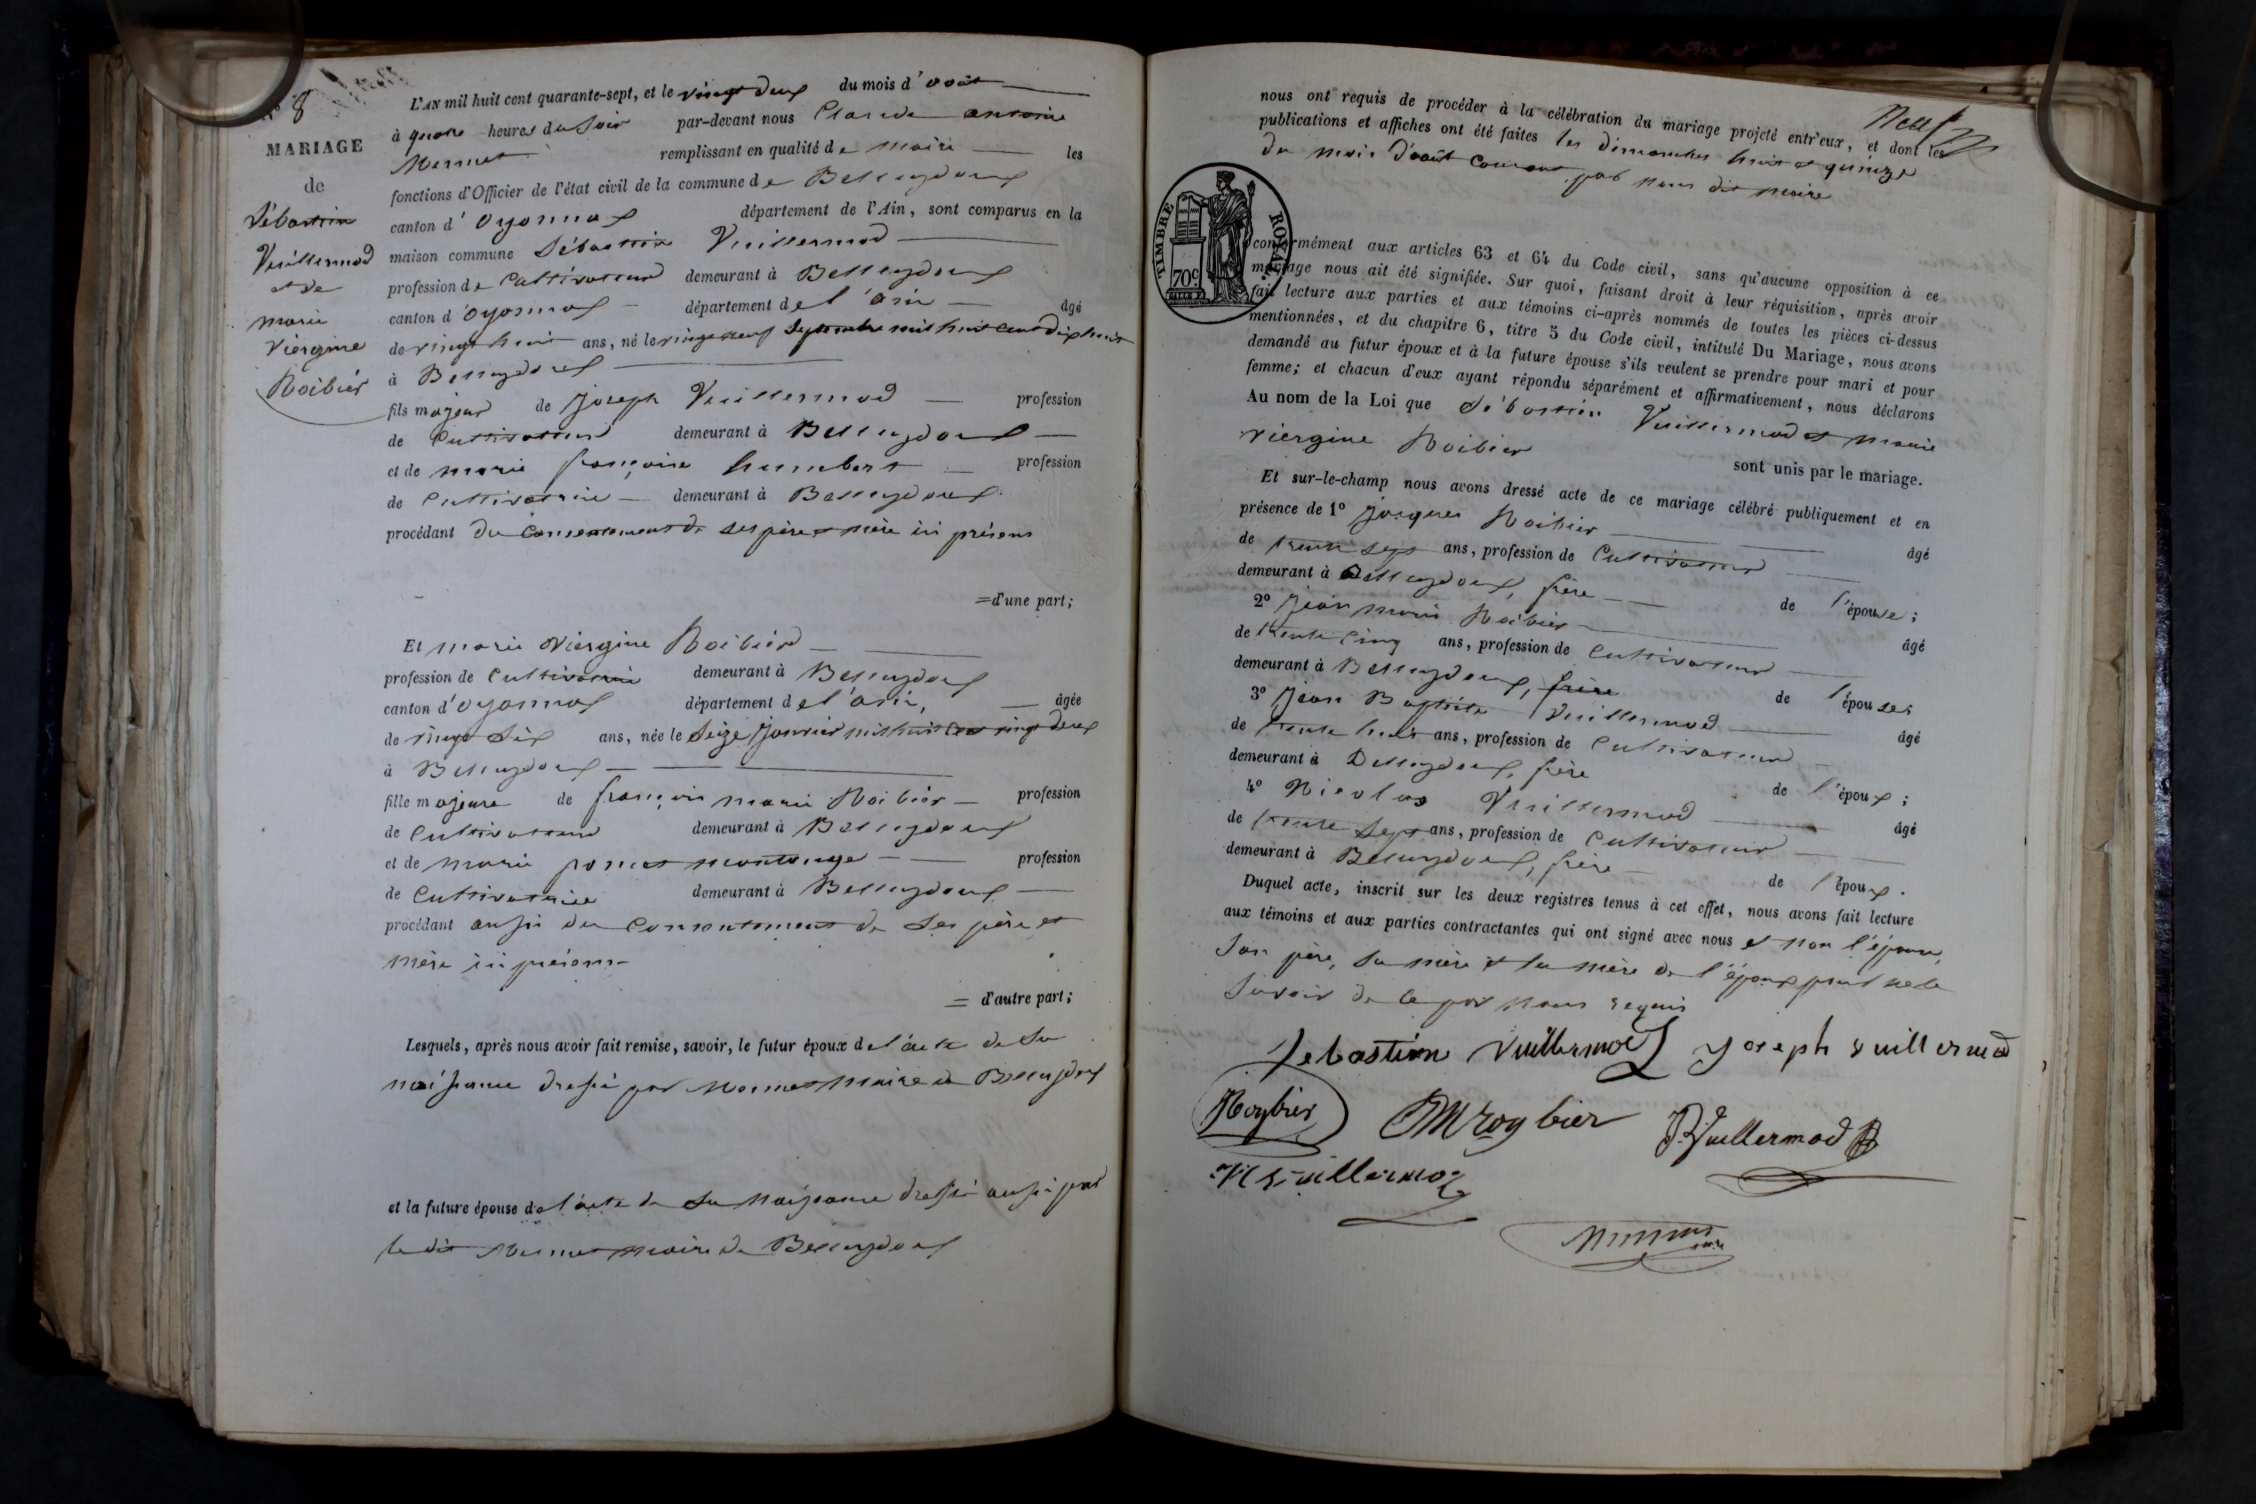 N° 8
MARIAGE
de
Sébastien
Vuillermod
et de
marie
Viergine
Roibier
L'AN mil huit cent quarante-sept, et le vingt deux du mois d'août
à quatre heures du soir par-devant nous Claude antoine
Mermet remplissant en qualité de maire les
fonctions d'Officier de l'état civil de la commune de Belleydoux
canton d'oyonnax département de l'Ain, sont comparus en la
maison commune Sébastien Vuillermod
profession de Cultivateur demeurant à Belleydoux
canton d'oyonnax département de l'ain âgé
de vingt huit ans, né le vingt neuf Septembre mil huit cent dix huit
à Belleydoux
fils majeur de Joseph Vuillermod profession
de Cultivateur demeurant à Belleydoux
et de marie françoise humbert profession
de Cultivatrice demeurant à Belleydoux
procédant du Consentement de ses père et mère ici présens
=d'une part;
Et marie Viergine Roibier
profession de Cultivatrice demeurant à Belleydoux
canton d'oyonnax département de l'ain, âgée
de vingt six ans, née le Seize Janvier mil huit cent vingt deux
à Belleydoux
fille majeure de françois marie Roibier profession
de Cultivateur demeurant à Belleydoux
et de marie poncet montange profession
de Cultivatrice demeurant à Belleydoux
procédant aussi du Consentement de ses père et
mère ici présens
= d'autre part;
Lesquels, après nous avoir fait remise, savoir, le futur époux de l'acte de sa
naissance dressé par Mermet maire de Belleydoux
et la future épouse de l'acte de sa naissance dressé aussi par
le dit Mermet maire de Belleydoux
nous ont requis de procéder à la célébration du mariage projeté entr'eux, et dont les
publications et affiches ont été faites les dimanches huit et quinze
du mois d'août courant par nous dit maire
TIMBRE ROYAL
70c
conformément aux articles 63 et 64 du Code civil, sans qu'aucune opposition à ce
mariage nous ait été signifiée. Sur quoi, faisant droit à leur réquisition, après avoir
fait lecture aux parties et aux témoins ci-après nommés de toutes les pièces ci-dessus
mentionnées, et du chapitre 6, titre 5 du Code civil, intitulé Du Mariage, nous avons
demandé au futur époux et à la future épouse s'ils veulent se prendre pour mari et pour
femme; et chacun d'eux ayant répondu séparément et affirmativement, nous déclarons
Au nom de la Loi que Sébastien Vuillermod et marie
viergine Roibier
sont unis par le mariage.
Et sur-le-champ nous avons dressé acte de ce mariage célébré publiquement et en
présence de 1° Jacques Roibier âgé
de trente sept ans, profession de Cultivateur
demeurant à Belleydoux, frère de l'épouse;
2° Jean marie Roibier âgé
de trente cinq ans, profession de Cultivateur
demeurant à Belleydoux, frère de l'épouse;
3° Jean Baptiste Vuillermod âgé
de trente huit ans, profession de Cultivateur
demeurant à Belleydoux, frère de l'époux;
4° Nicolas Vuillermod âgé
de trente sept ans, profession de Cultivateur
demeurant à Belleydoux, frère de l'époux.
Duquel acte, inscrit sur les deux registres tenus à cet effet, nous avons fait lecture
aux témoins et aux parties contractantes qui ont signé avec nous et non l'épouse,
son père, sa mère et la mère de l'époux pour ne le
savoir de ce par nous requis
Sebastien Vuillermoz Joseph vuillermod
Roybier JM roybier JB Vuillermod
N Vuillermoz
Mermet
maire